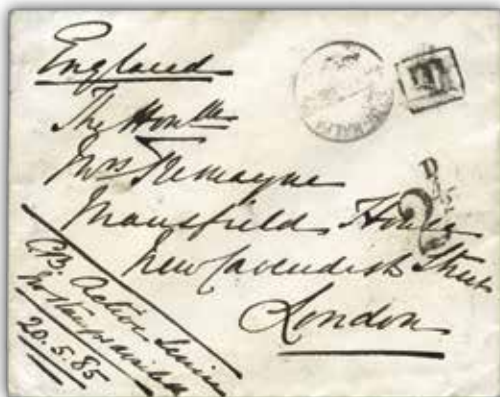 England
The Honble
Mrs Tremayne
Mansfield House
New Cavendish Street
London
C.B. Active Service
No Stamps available
20.5.85
T
D
2